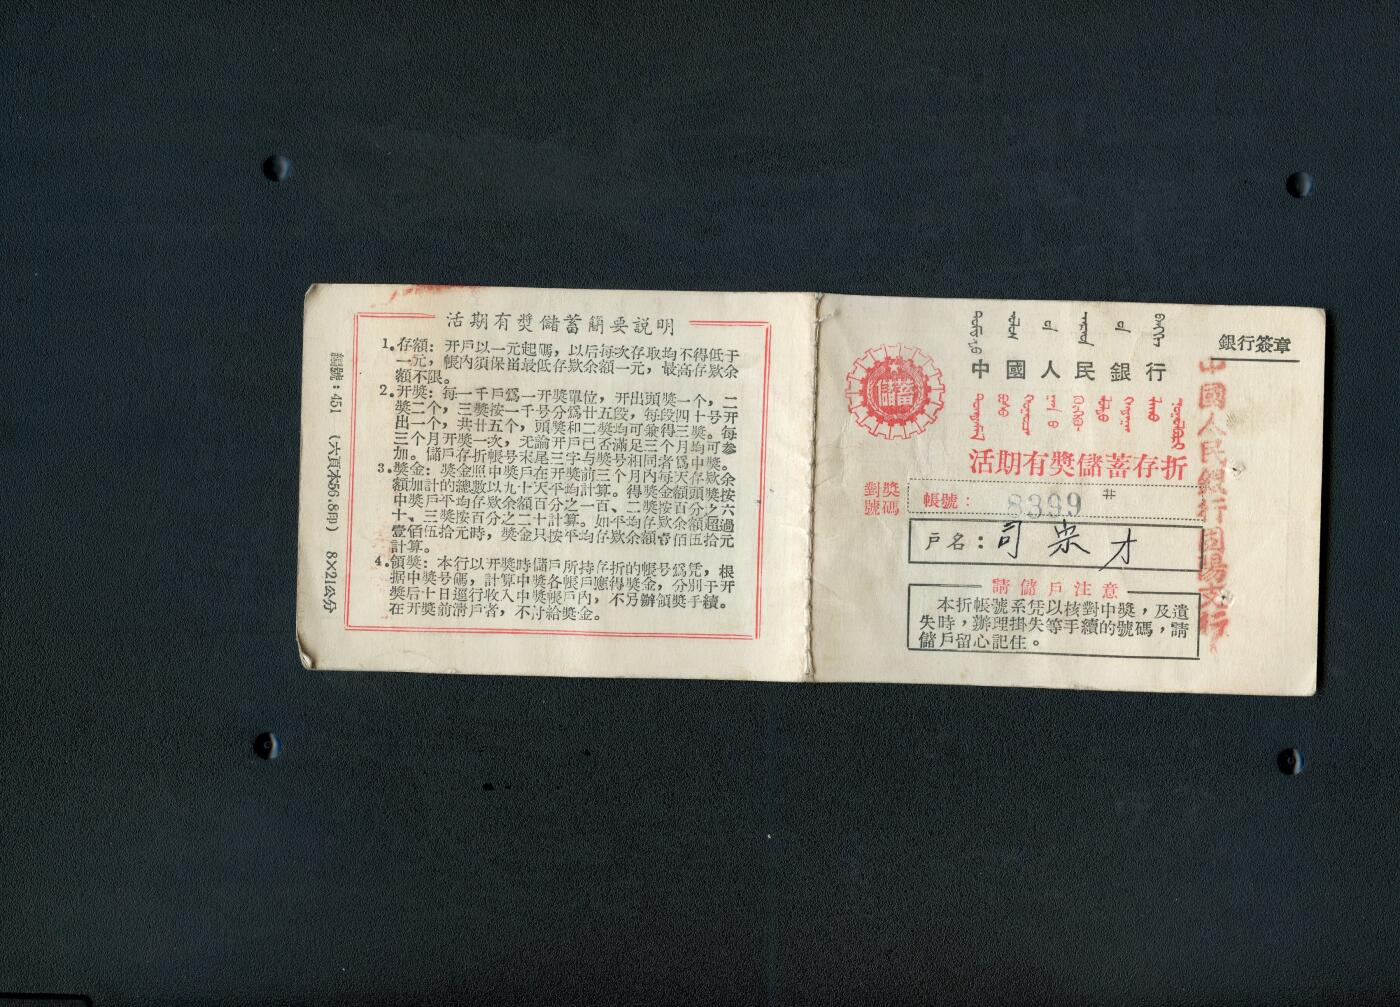 活期有獎儲蓄簡要説明
1.存額：开戶以一元起碼，以后每次存取均不得低于
一元，帳內須保畄最低存欵余額一元，最高存欵余
額不限。
2.开獎：每一千戶爲一开獎單位，开出頭獎一个，二
獎二个，三獎按一千号分爲廿五段，每段四十号开
出一个，共廿五个，頭獎和二獎均可兼得三獎。每
三个月开獎一次，无論开戶已否滿足三个月均可参
加。儲戶存折帳号末尾三字与獎号相同者爲中獎。
3.獎金：獎金照中獎戶在开獎前三个月內每天存欵余
額加計的總數以九十天平均計算。得獎金額頭獎按
中獎戶平均存欵余額百分之一百、二獎按百分之六
十、三獎按百分之二十計算。如平均存欵余額超過
壹佰伍拾元時，獎金只按平均存欵余額壹佰伍拾元
計算。
4.領獎：本行以开獎時儲戶所持存折的帳号爲凭，根
据中獎号碼，計算中獎各帳戶應得獎金，分別于开
獎后十日巡行收入中獎帳戶內，不另辦領獎手續。
在开獎前淸戶者，不計給獎金。
編號：451 （六頁本56.8印） 8×21公分
儲蓄
中國人民銀行
活期有獎儲蓄存折
對獎
號碼
帳號： 8399 #
戶名：司 才
請儲戶注意
本折帳號系凭以核對中獎，及遺
失時，辦理掛失等手續的號碼，請
儲戶留心記住。
銀行簽章
中國人民銀行固陽支行